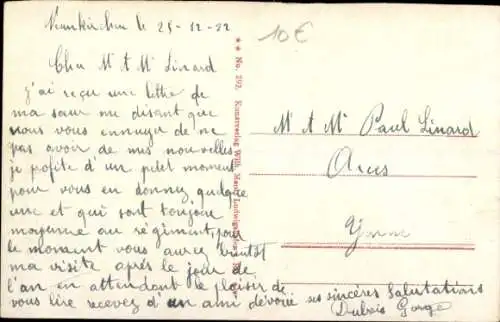 Neunkirchen le 25-12-22
10€
Cher Mr et Mme Linard
j'ai reçu une lettre de
ma sœur me disant que
vous vous ennuyer de ne
pas avoir de mes nouvelles
je profite d'un petit moment
pour vous en donnez quelque
une et qui sont toujour
moyenne au régiment, pour
le moment vous aurez bientôt
ma visite après le jour de
l'an en attendant le plaisir de
vous lire recevez d'un ami dévoué ses sincères Salutations
Dubois George
★ ★ No. 292. Kunstverlag Wilh.
Mr et Me Paul Linard
Arces
Yonne